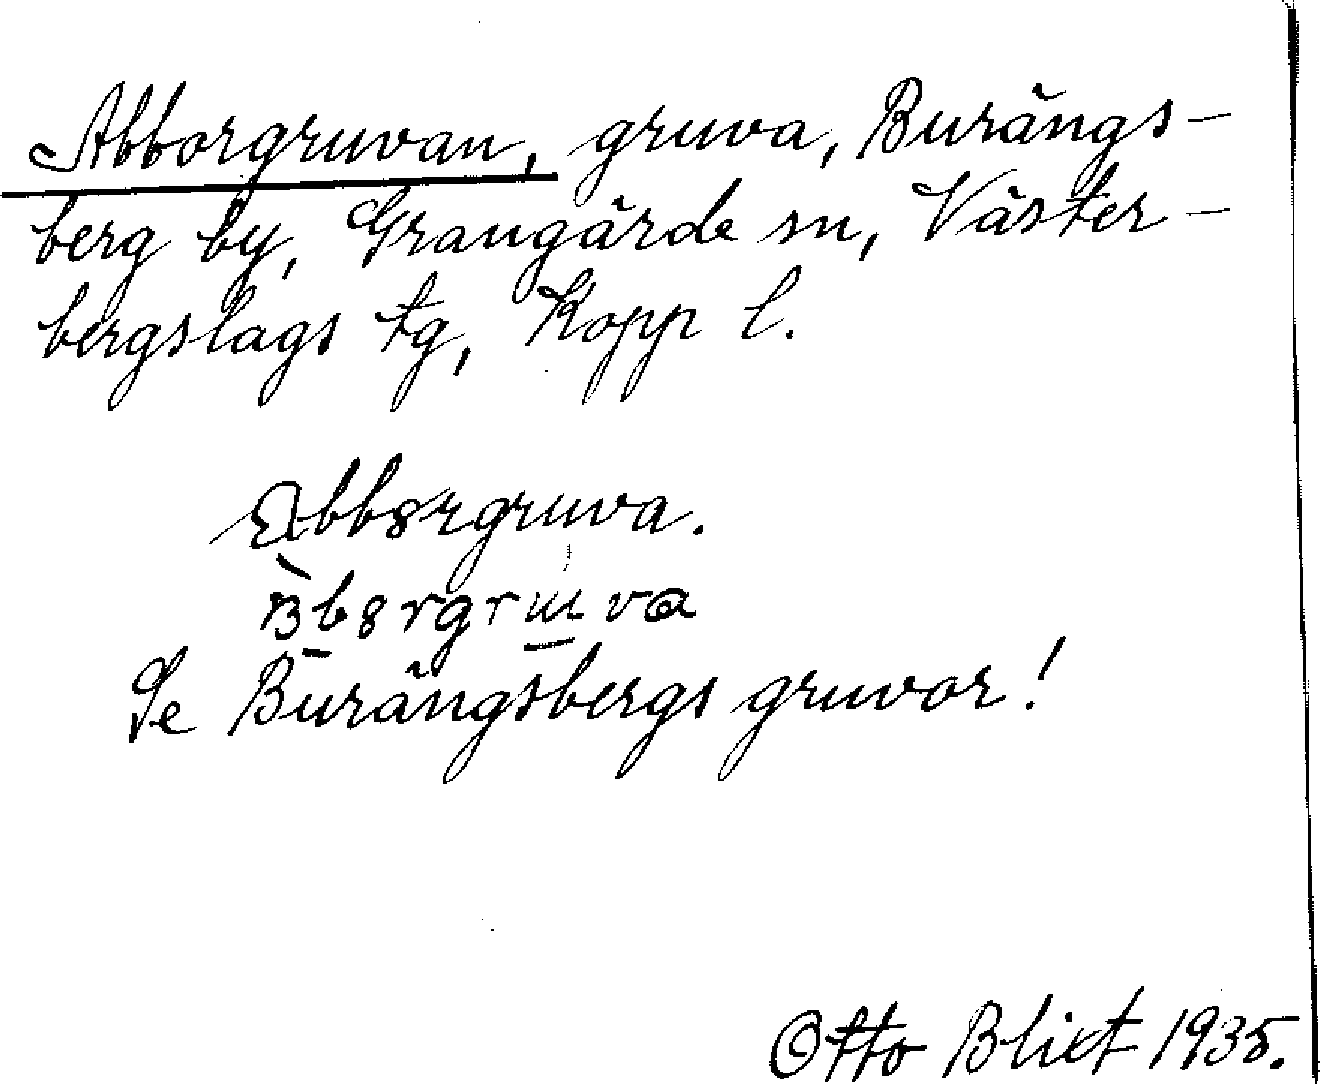 Abborgruvan, gruva, Burängs-
berg by, Grangärde sn, Väster-
bergslags tg, Kopp l.
Se Burängsbergs gruvor!
Otto Blixt 1935.